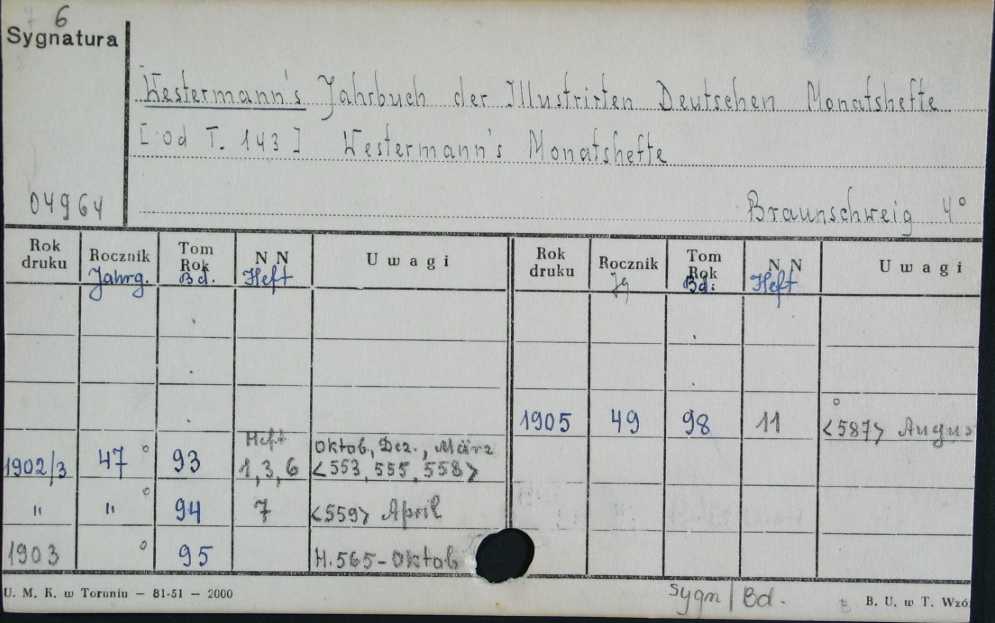 6
Sygnatura
Westermann's Jahrbuch der Illustrirten Deutschen Monatshefte
[od T. 143] Westermann's Monatshefte
04964
Braunschweig 4°
Rok druku Rocznik Jahrg. Tom Rok Bd. N N Heft Uwagi Rok druku Rocznik Jg Tom Rok Bd. N N Heft Uwagi
1905 49 98 11 <587> Augus
1902/3 47 ° 93 Heft 1,3,6 Oktob., Dez., März <553, 555, 558>
" " ° 94 7 <559> April
1903 ° 95 H. 565 - Oktob
U. M. K. w Toruniu — 81-51 — 2000
Sygn/Bd.
B. U. w T. Wzó